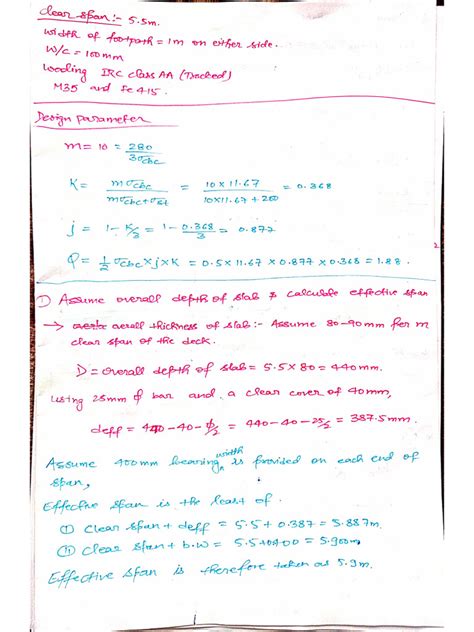 clear span:- 5.5m.
width of footpath = 1m on either side.
W/c = 100mm
Loading IRC class AA (Tracked)
M35 and Fe 415.
Design Parameter
m = 10 = 280 / 3σcbc
K = mσcbc / mσcbc + σst = 10 x 11.67 / 10x11.67 + 200 = 0.368
j = 1 - K/3 = 1 - 0.368/3 = 0.877
Q = 1/2 σcbc x j x K = 0.5 x 11.67 x 0.877 x 0.368 = 1.88.
2
① Assume overall depth of slab & calculate effective span
→ overall thickness of slab:- Assume 80-90mm per m
clear span of the deck.
D = overall depth of slab = 5.5 x 80 = 440mm.
using 25mm ϕ bar and a clear cover of 40mm,
deff = 440 - 40 - ϕ/2 = 440 - 40 - 25/2 = 387.5mm.
Assume 400mm bearing width is provided on each end of
span,
Effective span is the least of.
(i) clear span + deff = 5.5 + 0.387 = 5.887m.
(ii) clear span + b.w = 5.5+0.400 = 5.900m
Effective span is therefore taken as 5.9m.